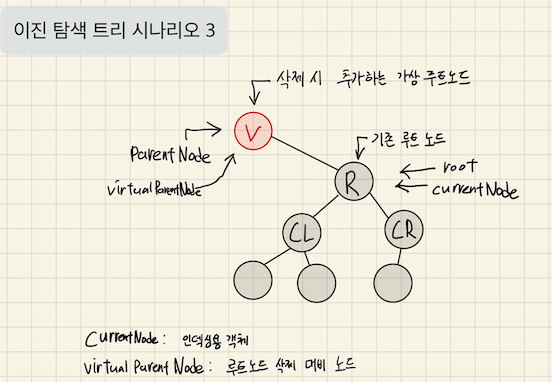 이진 탐색 트리 시나리오 3
삭제 시 추가하는 가상 루트노드
V
기존 루트 노드
ParentNode
virtualParentNode
root
R
currentNode
CL
CR
CurrentNode : 인덱싱용 객체
virtual Parent Node : 루트노드 삭제 대비 노드